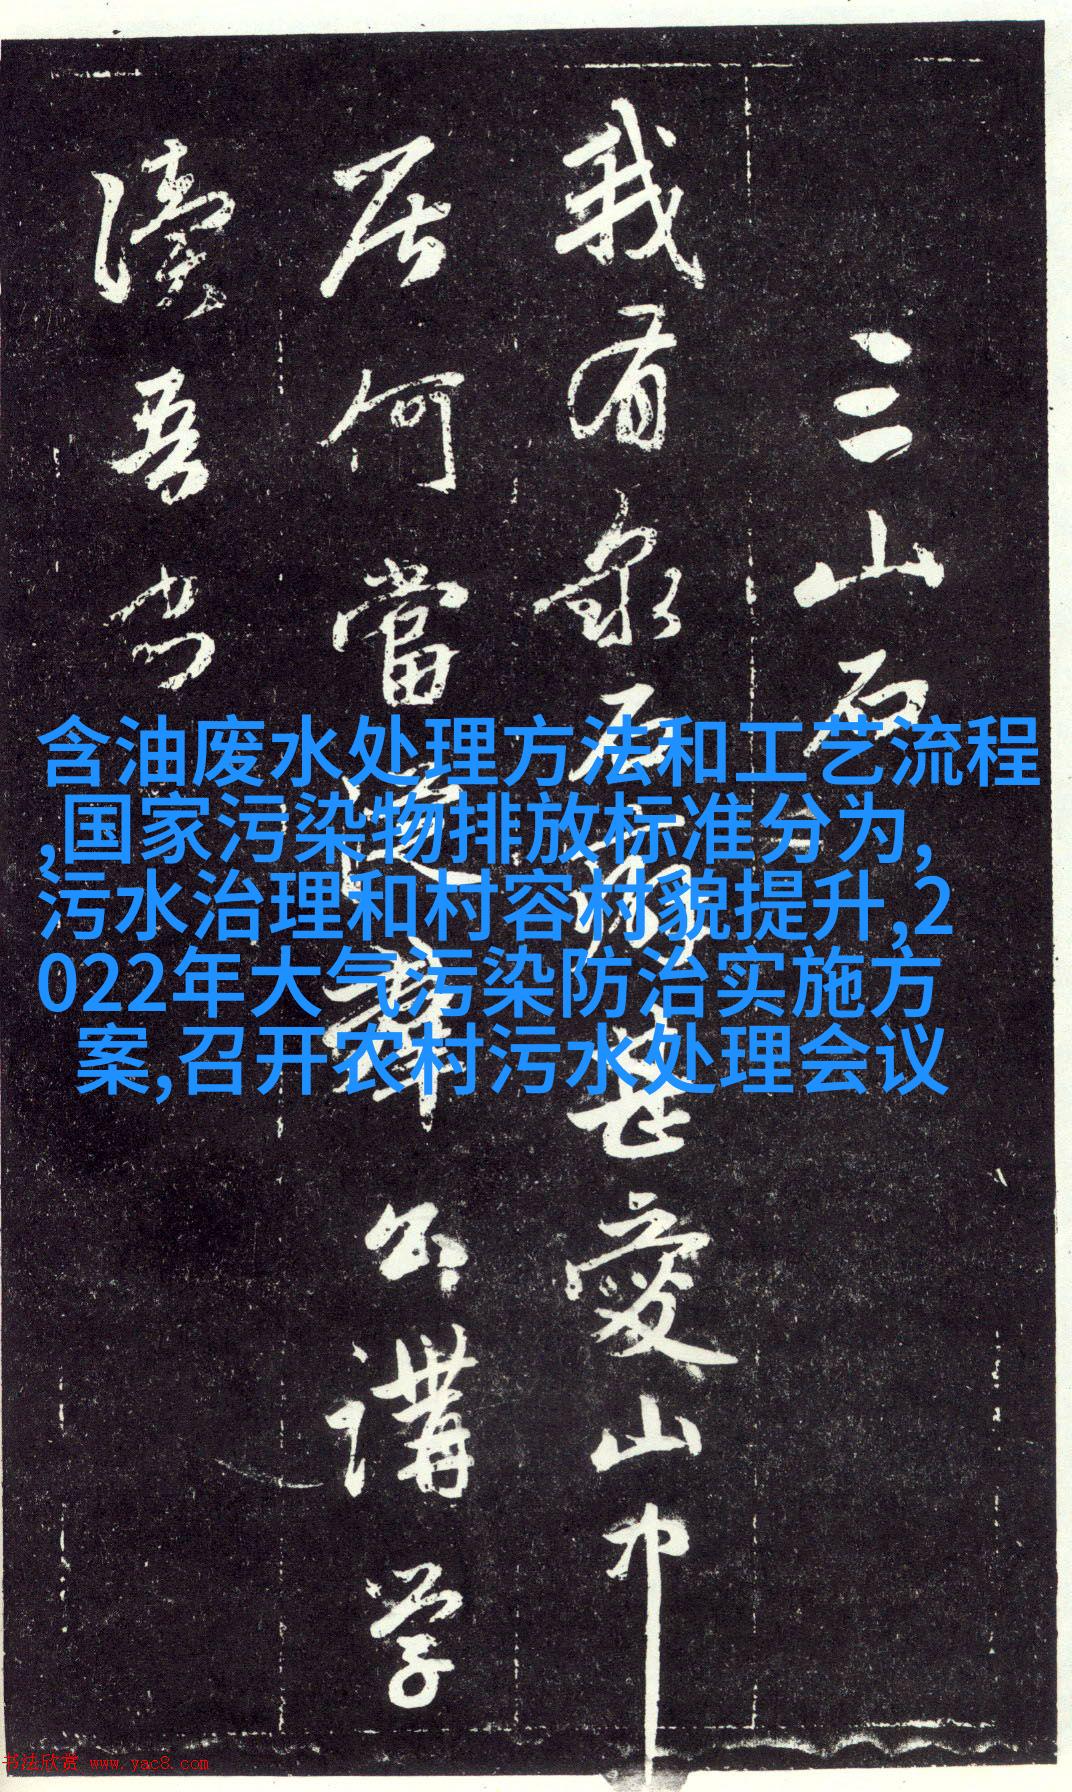 三山石
我有泉石甚愛山中
居何當群公講學
讀吾書
含油废水处理方法和工艺流程
,国家污染物排放标准分为,
污水治理和村容村貌提升,2
022年大气污染防治实施方
案,召开农村污水处理会议
书法欣赏 www.yac8.com